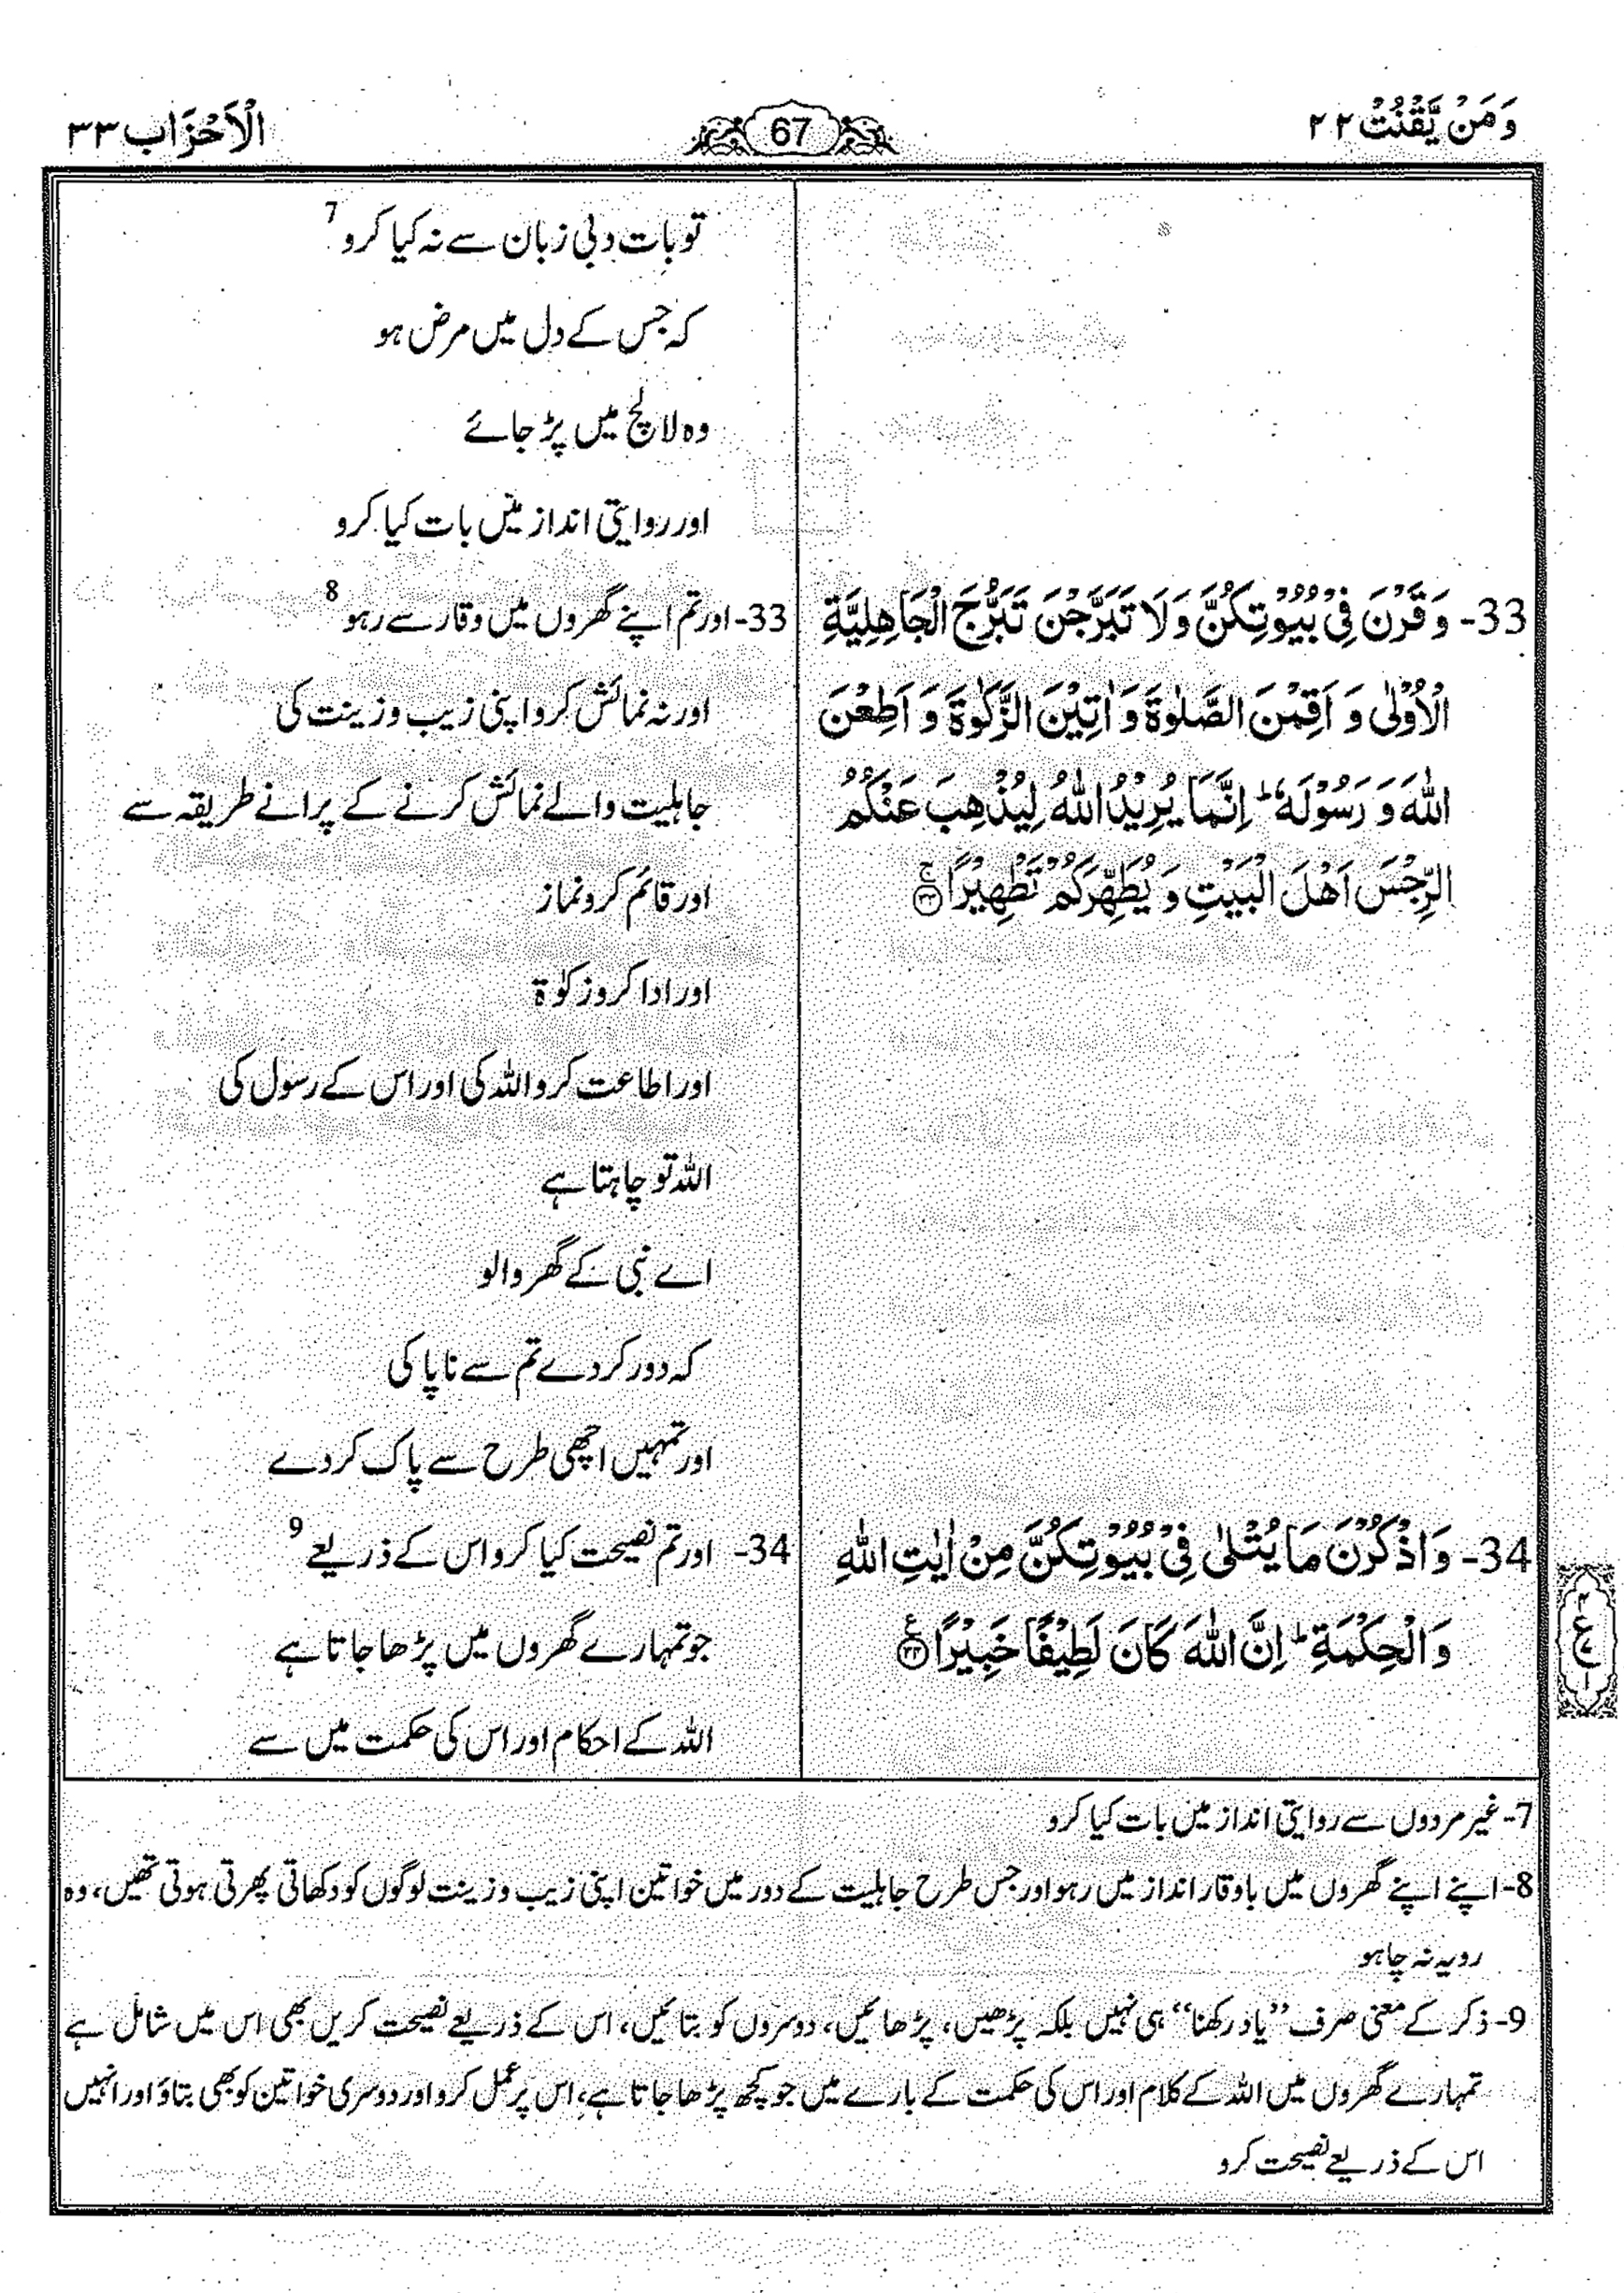 وَمَنْ يَّقْنُتْ ٢٢
67
الْاَحْزَاب ٣٣
توبات دبی زبان سے نہ کیا کرو 7
کہ جس کے دل میں مرض ہو
وہ لالچ میں پڑ جائے
اور روایتی انداز میں بات کیا کرو
33- وَقَرْنَ فِیْ بُیُوْتِكُنَّ وَلَا تَبَرَّجْنَ تَبَرُّجَ الْجَاهِلِیَّةِ
الْاُوْلٰی وَ اَقِمْنَ الصَّلٰوةَ وَ اٰتِیْنَ الزَّكٰوةَ وَ اَطِعْنَ
اللّٰهَ وَ رَسُوْلَهٗ ؕ اِنَّمَا یُرِیْدُ اللّٰهُ لِیُذْهِبَ عَنْكُمُ
الرِّجْسَ اَهْلَ الْبَیْتِ وَ یُطَهِّرَكُمْ تَطْهِیْرًا ۚ ٣٣
33- اور تم اپنے گھروں میں وقار سے رہو 8
اور نہ نمائش کرو اپنی زیب و زینت کی
جاہلیت والے نمائش کرنے کے پرانے طریقہ سے
اور قائم کرو نماز
اور ادا کرو زکوٰۃ
اور اطاعت کرو اللہ کی اور اس کے رسول کی
اللہ تو چاہتا ہے
اے نبی کے گھر والو
کہ دور کر دے تم سے ناپاکی
اور تمہیں اچھی طرح سے پاک کر دے
34- وَاذْكُرْنَ مَا یُتْلٰی فِیْ بُیُوْتِكُنَّ مِنْ اٰیٰتِ اللّٰهِ
وَالْحِكْمَةِ ؕ اِنَّ اللّٰهَ كَانَ لَطِیْفًا خَبِیْرًا ٣٤ ع
34- اور تم نصیحت کیا کرو اس کے ذریعے 9
جو تمہارے گھروں میں پڑھا جاتا ہے
اللہ کے احکام اور اس کی حکمت میں سے
7- غیر مردوں سے روایتی انداز میں بات کیا کرو
8- اپنے اپنے گھروں میں باوقار انداز میں رہو اور جس طرح جاہلیت کے دور میں خواتین اپنی زیب و زینت لوگوں کو دکھاتی پھرتی ہوتی تھیں، وہ
رویہ نہ چاہو
9- ذکر کے معنی صرف ”یاد رکھنا“ ہی نہیں بلکہ پڑھیں، پڑھائیں، دوسروں کو بتائیں، اس کے ذریعے نصیحت کریں بھی اس میں شامل ہے
تمہارے گھروں میں اللہ کے کلام اور اس کی حکمت کے بارے میں جو کچھ پڑھا جاتا ہے، اس پر عمل کرو اور دوسری خواتین کو بھی بتاؤ اور انہیں
اس کے ذریعے نصیحت کرو